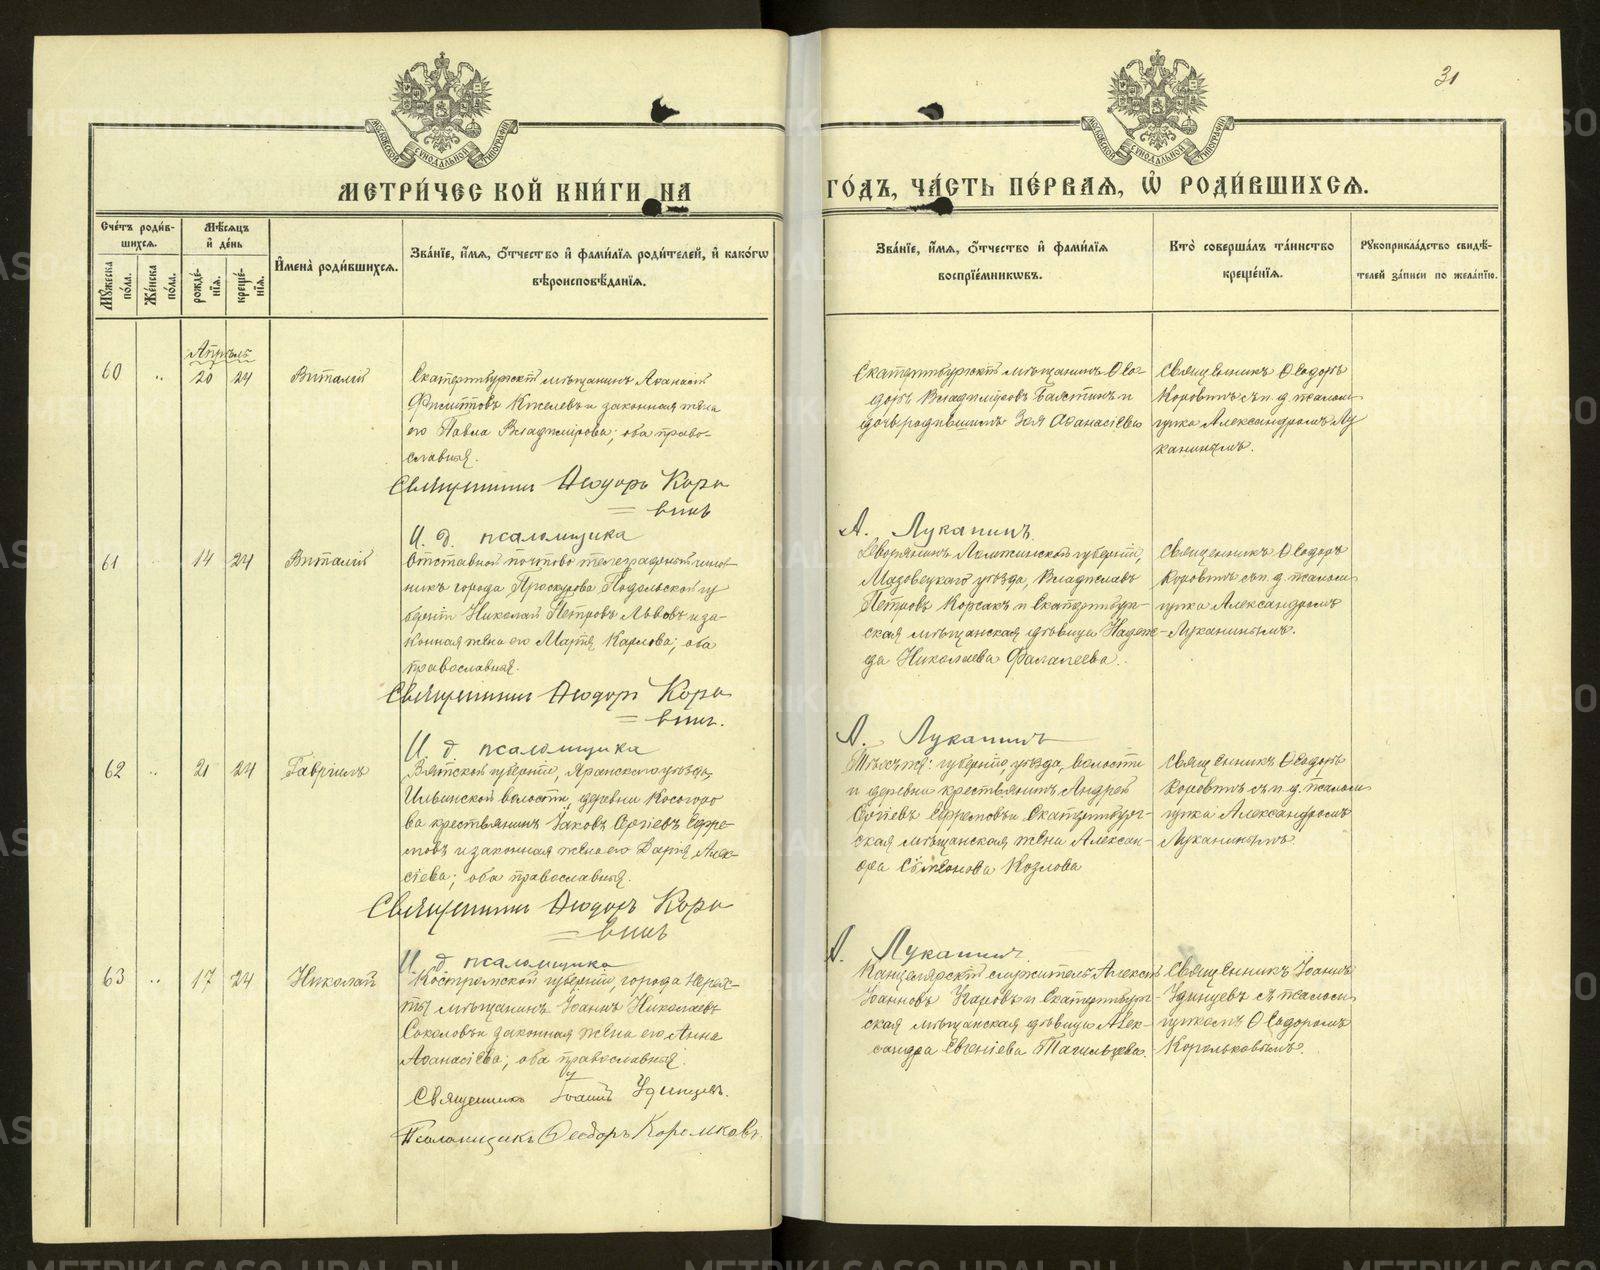 31
МОСКОВСКОЙ СѴНОДАЛЬНОЙ ТИПОГРАФІИ
МОСКОВСКОЙ СѴНОДАЛЬНОЙ ТИПОГРАФІИ
МЕТРИ́ЧЕСКОЙ КНИ́ГИ НА
ГО́ДЪ, ЧА́СТЬ ПЕ́РВАЯ, Ѡ҆ РОДИ́ВШИХСЯ.
Сче́тъ роди́в-
шихся.
Мꙋ́жеска по́ла.
Же́нска по́ла.
Мѣ́сяцъ
и҆ де́нь
рожде́-
нїя.
креще́-
нїя.
И҆мена̀ роди́вшихся.
Зва́нїе, и҆́мя, ѻ҆́тчество и҆ фамі́лїя роди́телей, и҆ како́гѡ
вѣроисповѣ́данїя.
Зва́нїе, и҆́мя, ѻ҆́тчество и҆ фамі́лїя
воспрїе́мникѡвъ.
Кто̀ соверша́лъ та́инство
креще́нїя.
Рꙋкоприкла́дство свидѣ́-
телей за́писи по жела́нїю.
Апрѣль
60
"
20
24
Виталій
Екатеринбургскій мѣщанинъ Аѳанасій
Филипповъ Киселевъ и законная жена
его Павла Владимірова; оба право-
славныя.
Священникъ Ѳеодоръ Коро
=
винъ
И. д. псаломщика
Екатеринбургскій мѣщанинъ Ѳео-
доръ Владиміровъ и
дочь родившимъ Зоя Аѳанасіева
А. Луканинъ.
Священникъ Ѳеодоръ
Коровинъ съ и. д. псалом
щика Александромъ Лу
канинымъ.
61
"
14
24
Виталій
Отставной почтово телеграфный чинов-
никъ города Проскурова Подольской гу
берніи Николай Петровъ Львовъ и за-
конная жена его Марія Карлова; оба
православныя.
Священникъ Ѳеодоръ Коро
=
винъ.
И. д. псаломщика
Дворянинъ Ломжинской губерніи,
Мазовецкаго уѣзда, Владиславъ
Петровъ Корсакъ и Екатеринбург-
ская мѣщанская дѣвица Надеж-
да Николаева Фалалеева.
А. Луканинъ
Священникъ Ѳеодоръ
Коровинъ съ и. д. псалом
щика Александромъ
Луканинымъ.
62
"
21
24
Гавріилъ
Вятской губерніи, Яранскаго уѣзда,
Ильинской волости, деревни Косогоро
ва крестьянинъ Іаковъ Сергіевъ Ефре-
мовъ и законная жена его Дарія Алек-
сіева; оба православныя.
Священникъ Ѳеодоръ Коро
=
винъ
И. д. псаломщика
Тѣхъ же: губерніи, уѣзда, волости
и деревни крестьянинъ Андрей
Сергіевъ Ефремовъ и Екатеринбург-
ская мѣщанская жена Алексан-
дра Сѵмеонова Козлова
А. Луканинъ.
Священникъ Ѳеодоръ
Коровинъ съ и. д. псалом
щика Александромъ
Луканинымъ.
63
"
17
24
Николай
Костромской губерніи, города Нерех-
ты мѣщанинъ Іоаннъ Николаевъ
Соколовъ и законная жена его Анна
Аѳанасіева; оба православныя.
Священникъ Іоаннъ Удинцевъ.
Псаломщикъ Ѳеодоръ Корольковъ.
Канцелярскій служитель Алексій
Іоанновъ и Екатеринбург-
ская мѣщанская дѣвица Алек-
сандра Евгеніева Тагильцева.
Священникъ Іоаннъ
Удинцевъ съ псалом
щикомъ Ѳеодоромъ
Корольковымъ.
METRIKI.GASO-URAL.RU